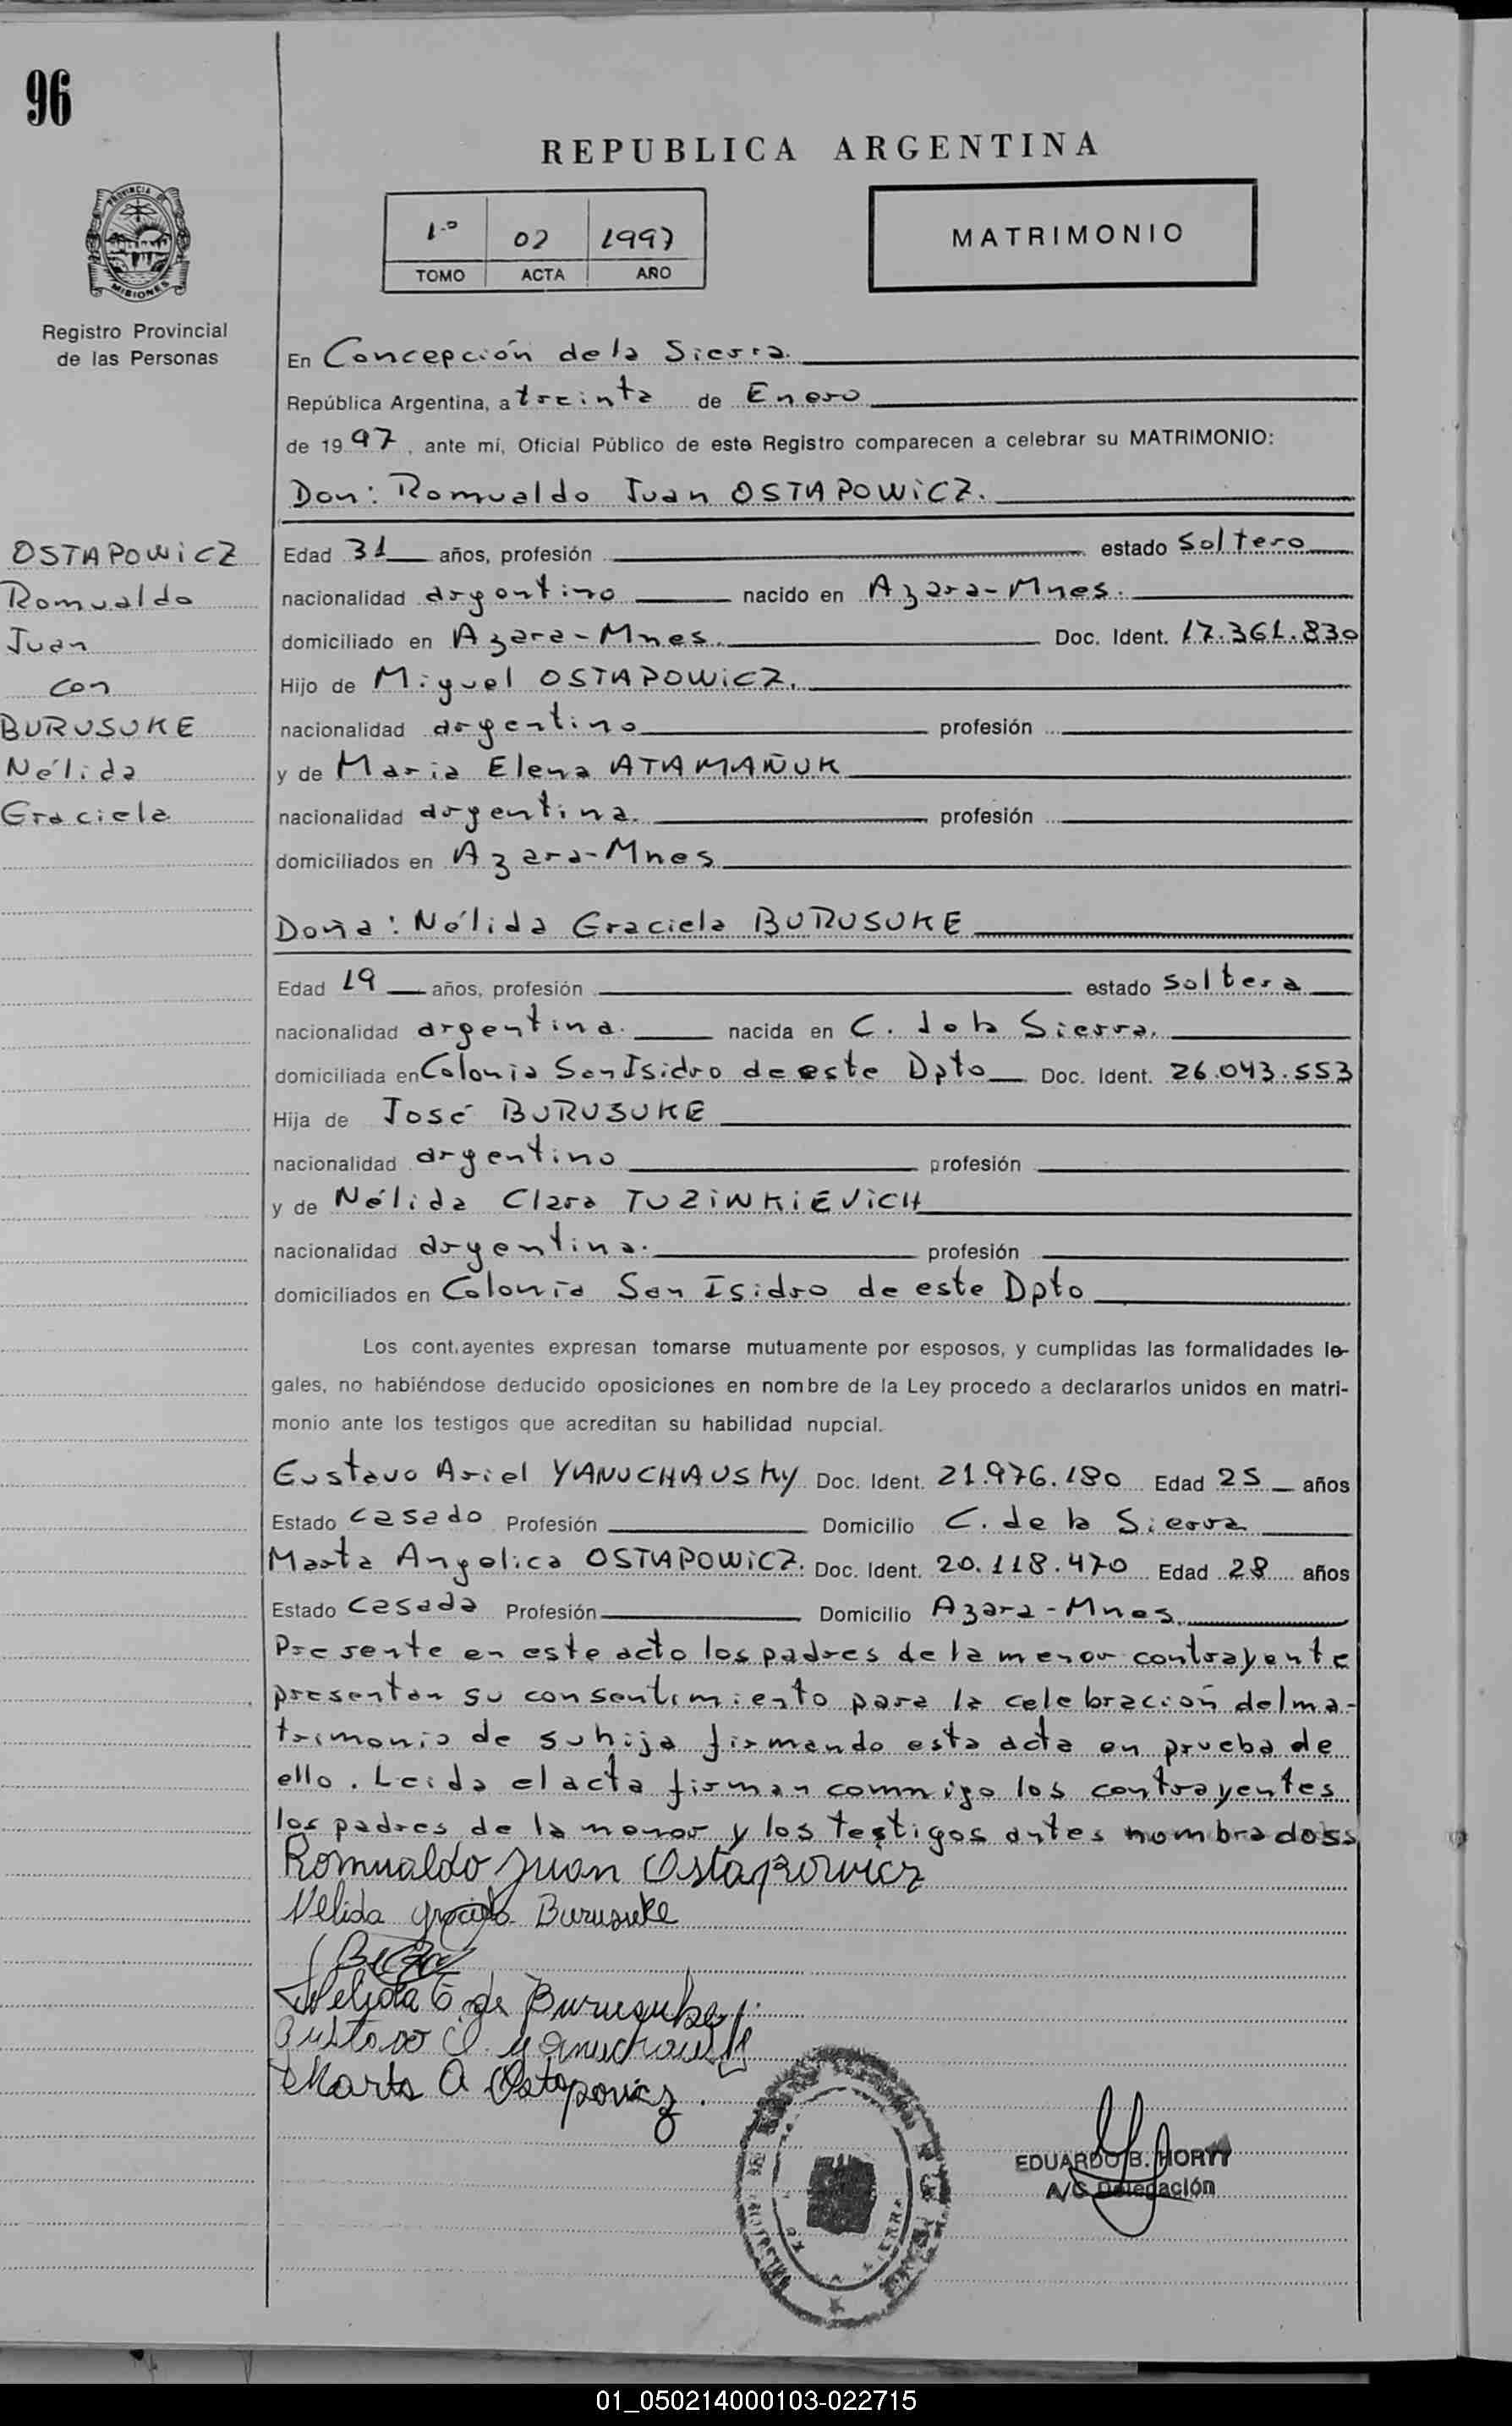 96
REPUBLICA ARGENTINA
1.º 02 1997
TOMO ACTA AÑO
MATRIMONIO
PROVINCIA DE
MISIONES
Registro Provincial
de las Personas
En Concepción de la Sierra.
República Argentina, a treinta de Enero
de 1997, ante mí, Oficial Público de este Registro comparecen a celebrar su MATRIMONIO:
Don: Romualdo Juan OSTAPOWICZ.
OSTAPOWICZ
Romualdo
Juan
con
BURUSUKE
Nélida
Graciela
Edad 31 años, profesión estado soltero
nacionalidad argentino nacido en Azara-Mnes.
domiciliado en Azara-Mnes. Doc. Ident. 17.361.830
Hijo de Miguel OSTAPOWICZ.
nacionalidad argentino profesión
y de Maria Elena ATAMAÑUK
nacionalidad argentina. profesión
domiciliados en Azara-Mnes
Doña: Nélida Graciela BURUSUKE
Edad 19 años, profesión estado soltera
nacionalidad argentina. nacida en C. de la Sierra.
domiciliada en Colonia San Isidro de este Dpto Doc. Ident. 26.043.553
Hija de José BURUSUKE
nacionalidad argentino profesión
y de Nélida Clara TUZINKIEVICH
nacionalidad argentina. profesión
domiciliados en Colonia San Isidro de este Dpto
Los contrayentes expresan tomarse mutuamente por esposos, y cumplidas las formalidades le-
gales, no habiéndose deducido oposiciones en nombre de la Ley procedo a declararlos unidos en matri-
monio ante los testigos que acreditan su habilidad nupcial.
Gustavo Ariel YANUCHAUSKY Doc. Ident. 21.976.180 Edad 25 años
Estado casado Profesión Domicilio C. de la Sierra
Marta Angelica OSTAPOWICZ. Doc. Ident. 20.118.470 Edad 28 años
Estado casada Profesión Domicilio Azara-Mnes.
Presente en este acto los padres de la menor contrayente
presentan su consentimiento para la celebración del ma-
trimonio de su hija firmando esta acta en prueba de
ello. Leida el acta firman commigo los contrayentes
los padres de la menor y los testigos antes nombradoss
Romualdo Juan Ostapowicz
Nelida Graciela Burusuke
Nelida T de Burusuke
Gustavo A. Yanuchausky
Marta A Ostapovicz.
EDUARDO B. HORYT
A/C Delegación
01_050214000103-022715